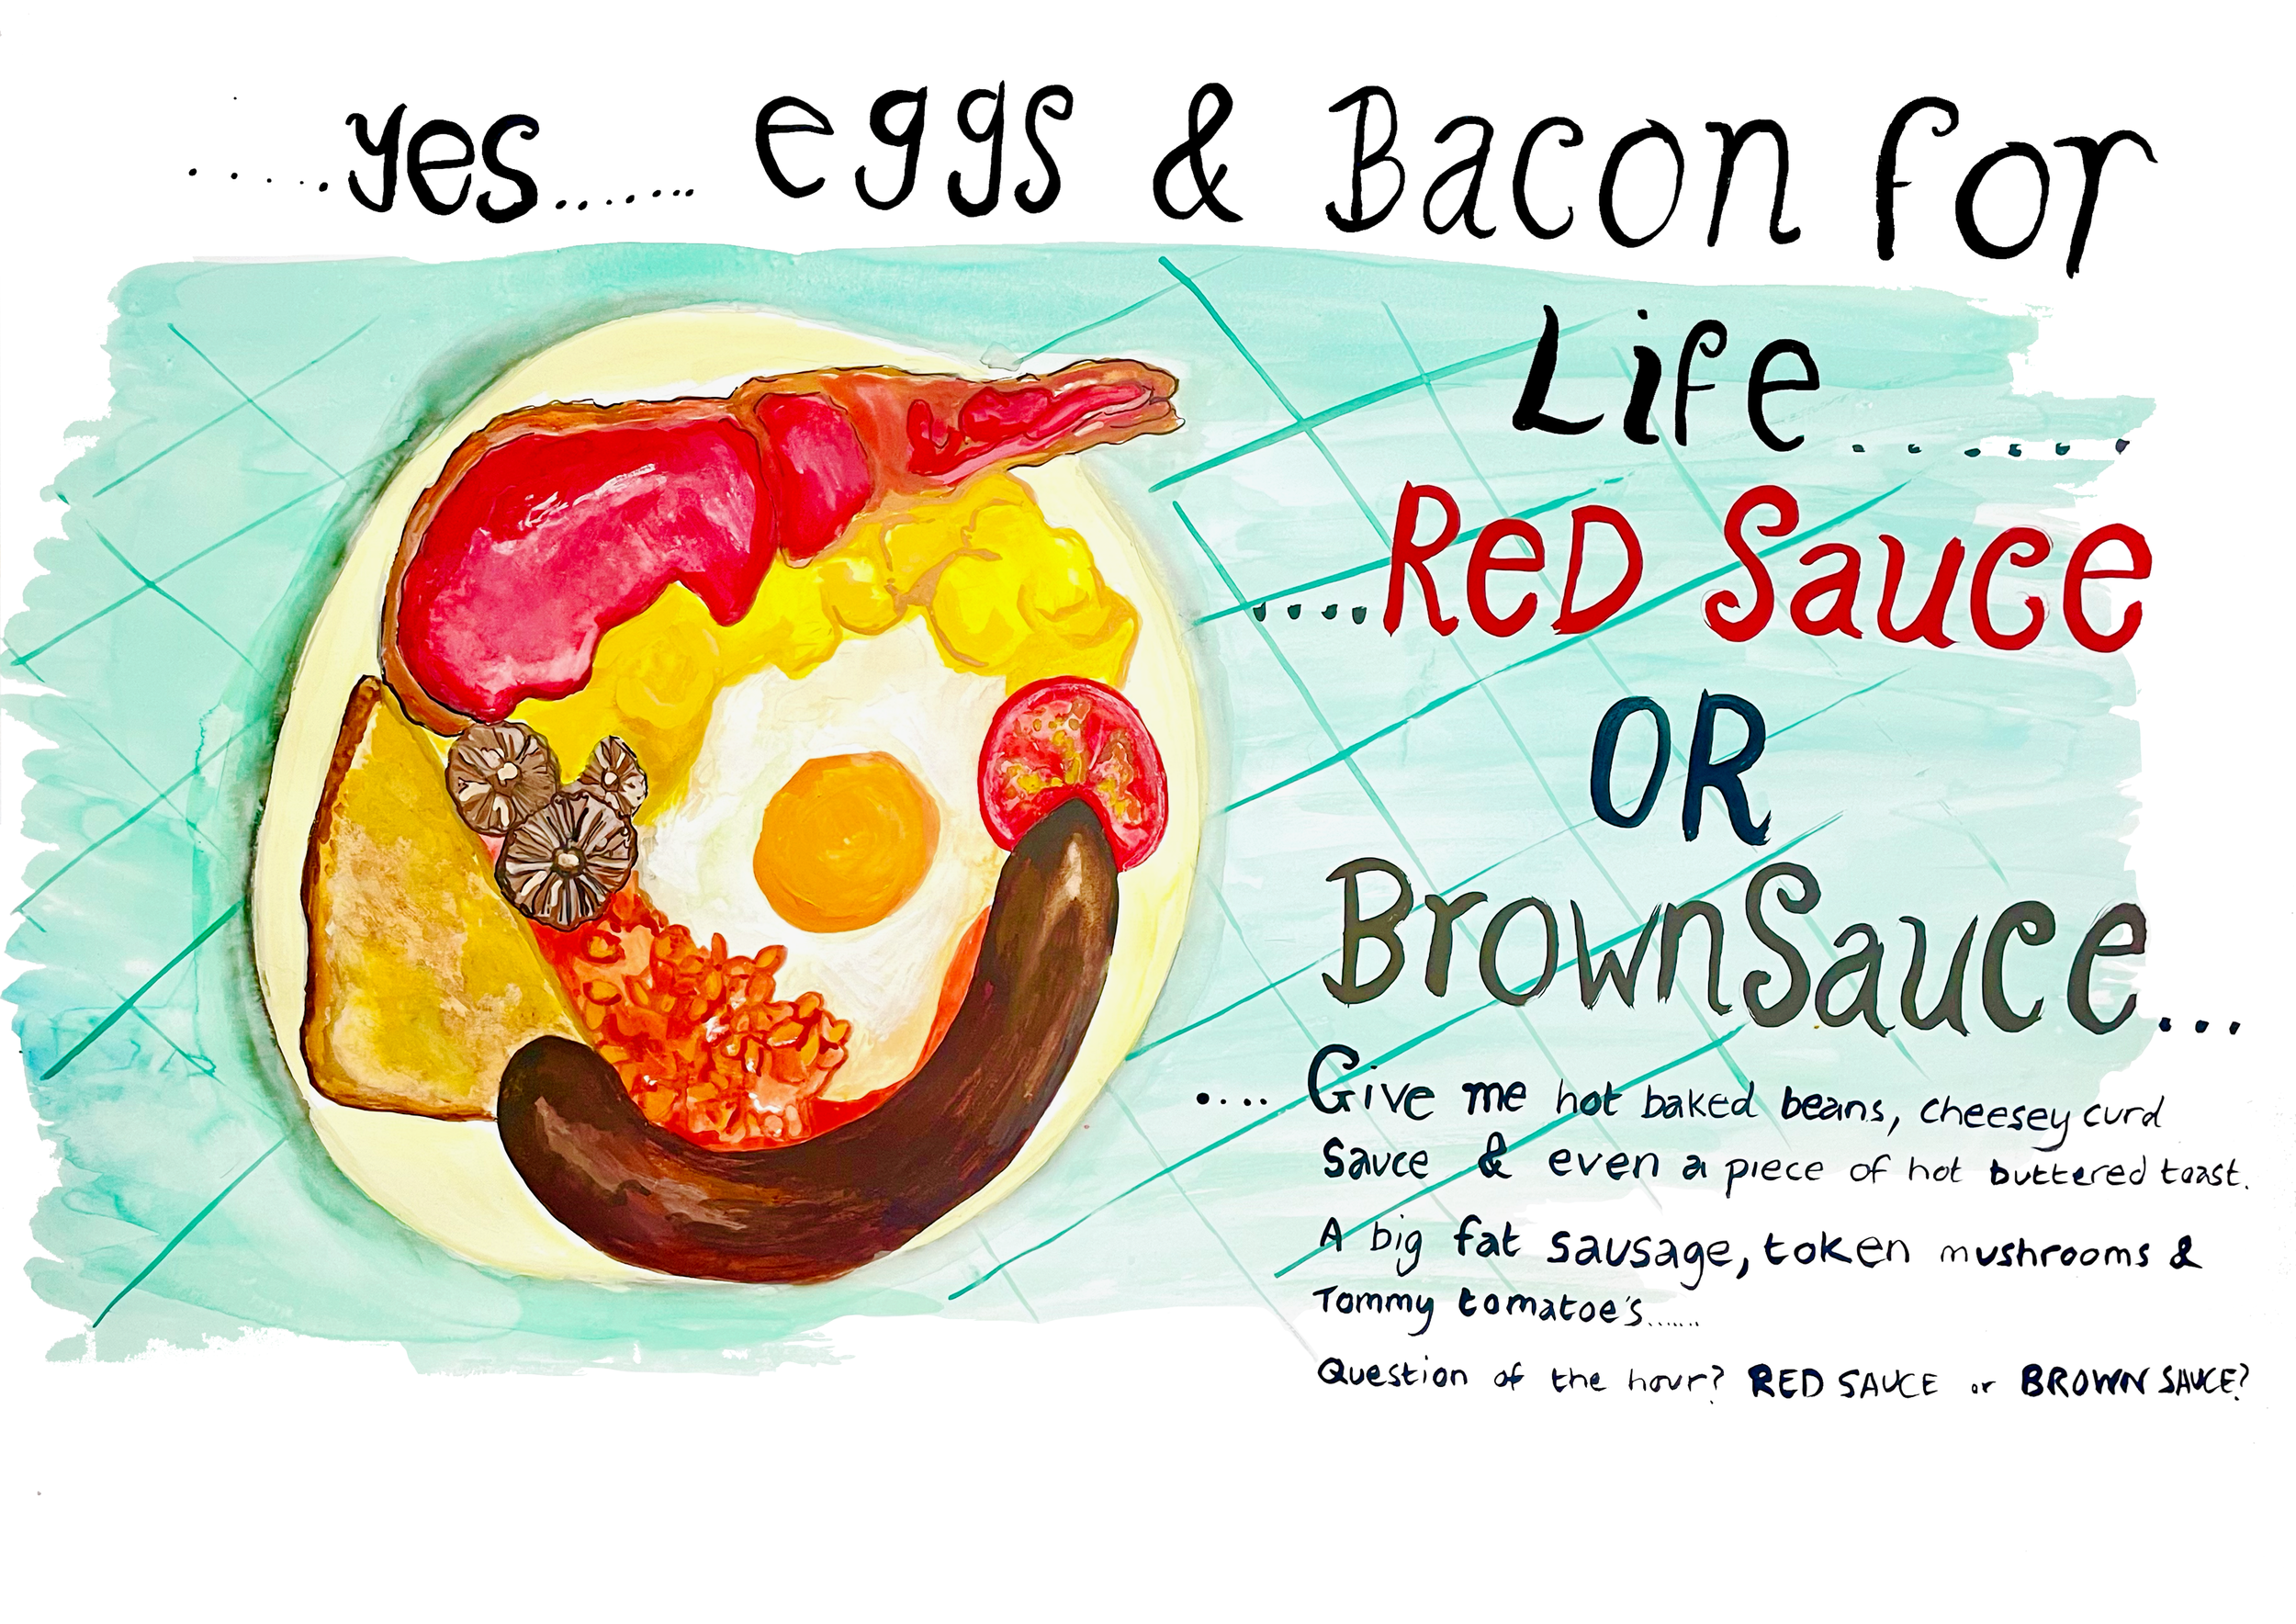 .....yes...... eggs & Bacon for
Life......
....Red Sauce
OR
BrownSauce...
.... Give me hot baked beans, cheesey curd
Sauce & even a piece of hot buttered toast.
A big fat sausage, token mushrooms &
Tommy tomatoe's......
Question of the hour? RED SAUCE or BROWN SAUCE?